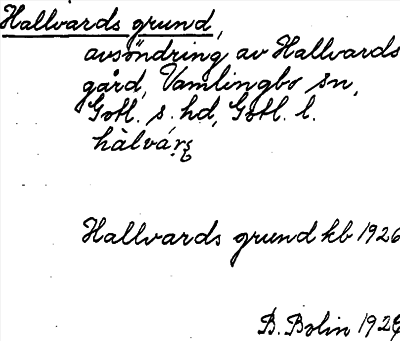 Hallvards grund,
avsöndring av Hallvards
gård, Vamlingbo sn,
Gotl. s. hd, Gotl. l.
Hallvards grund kb 1926
B. Bolin 1926